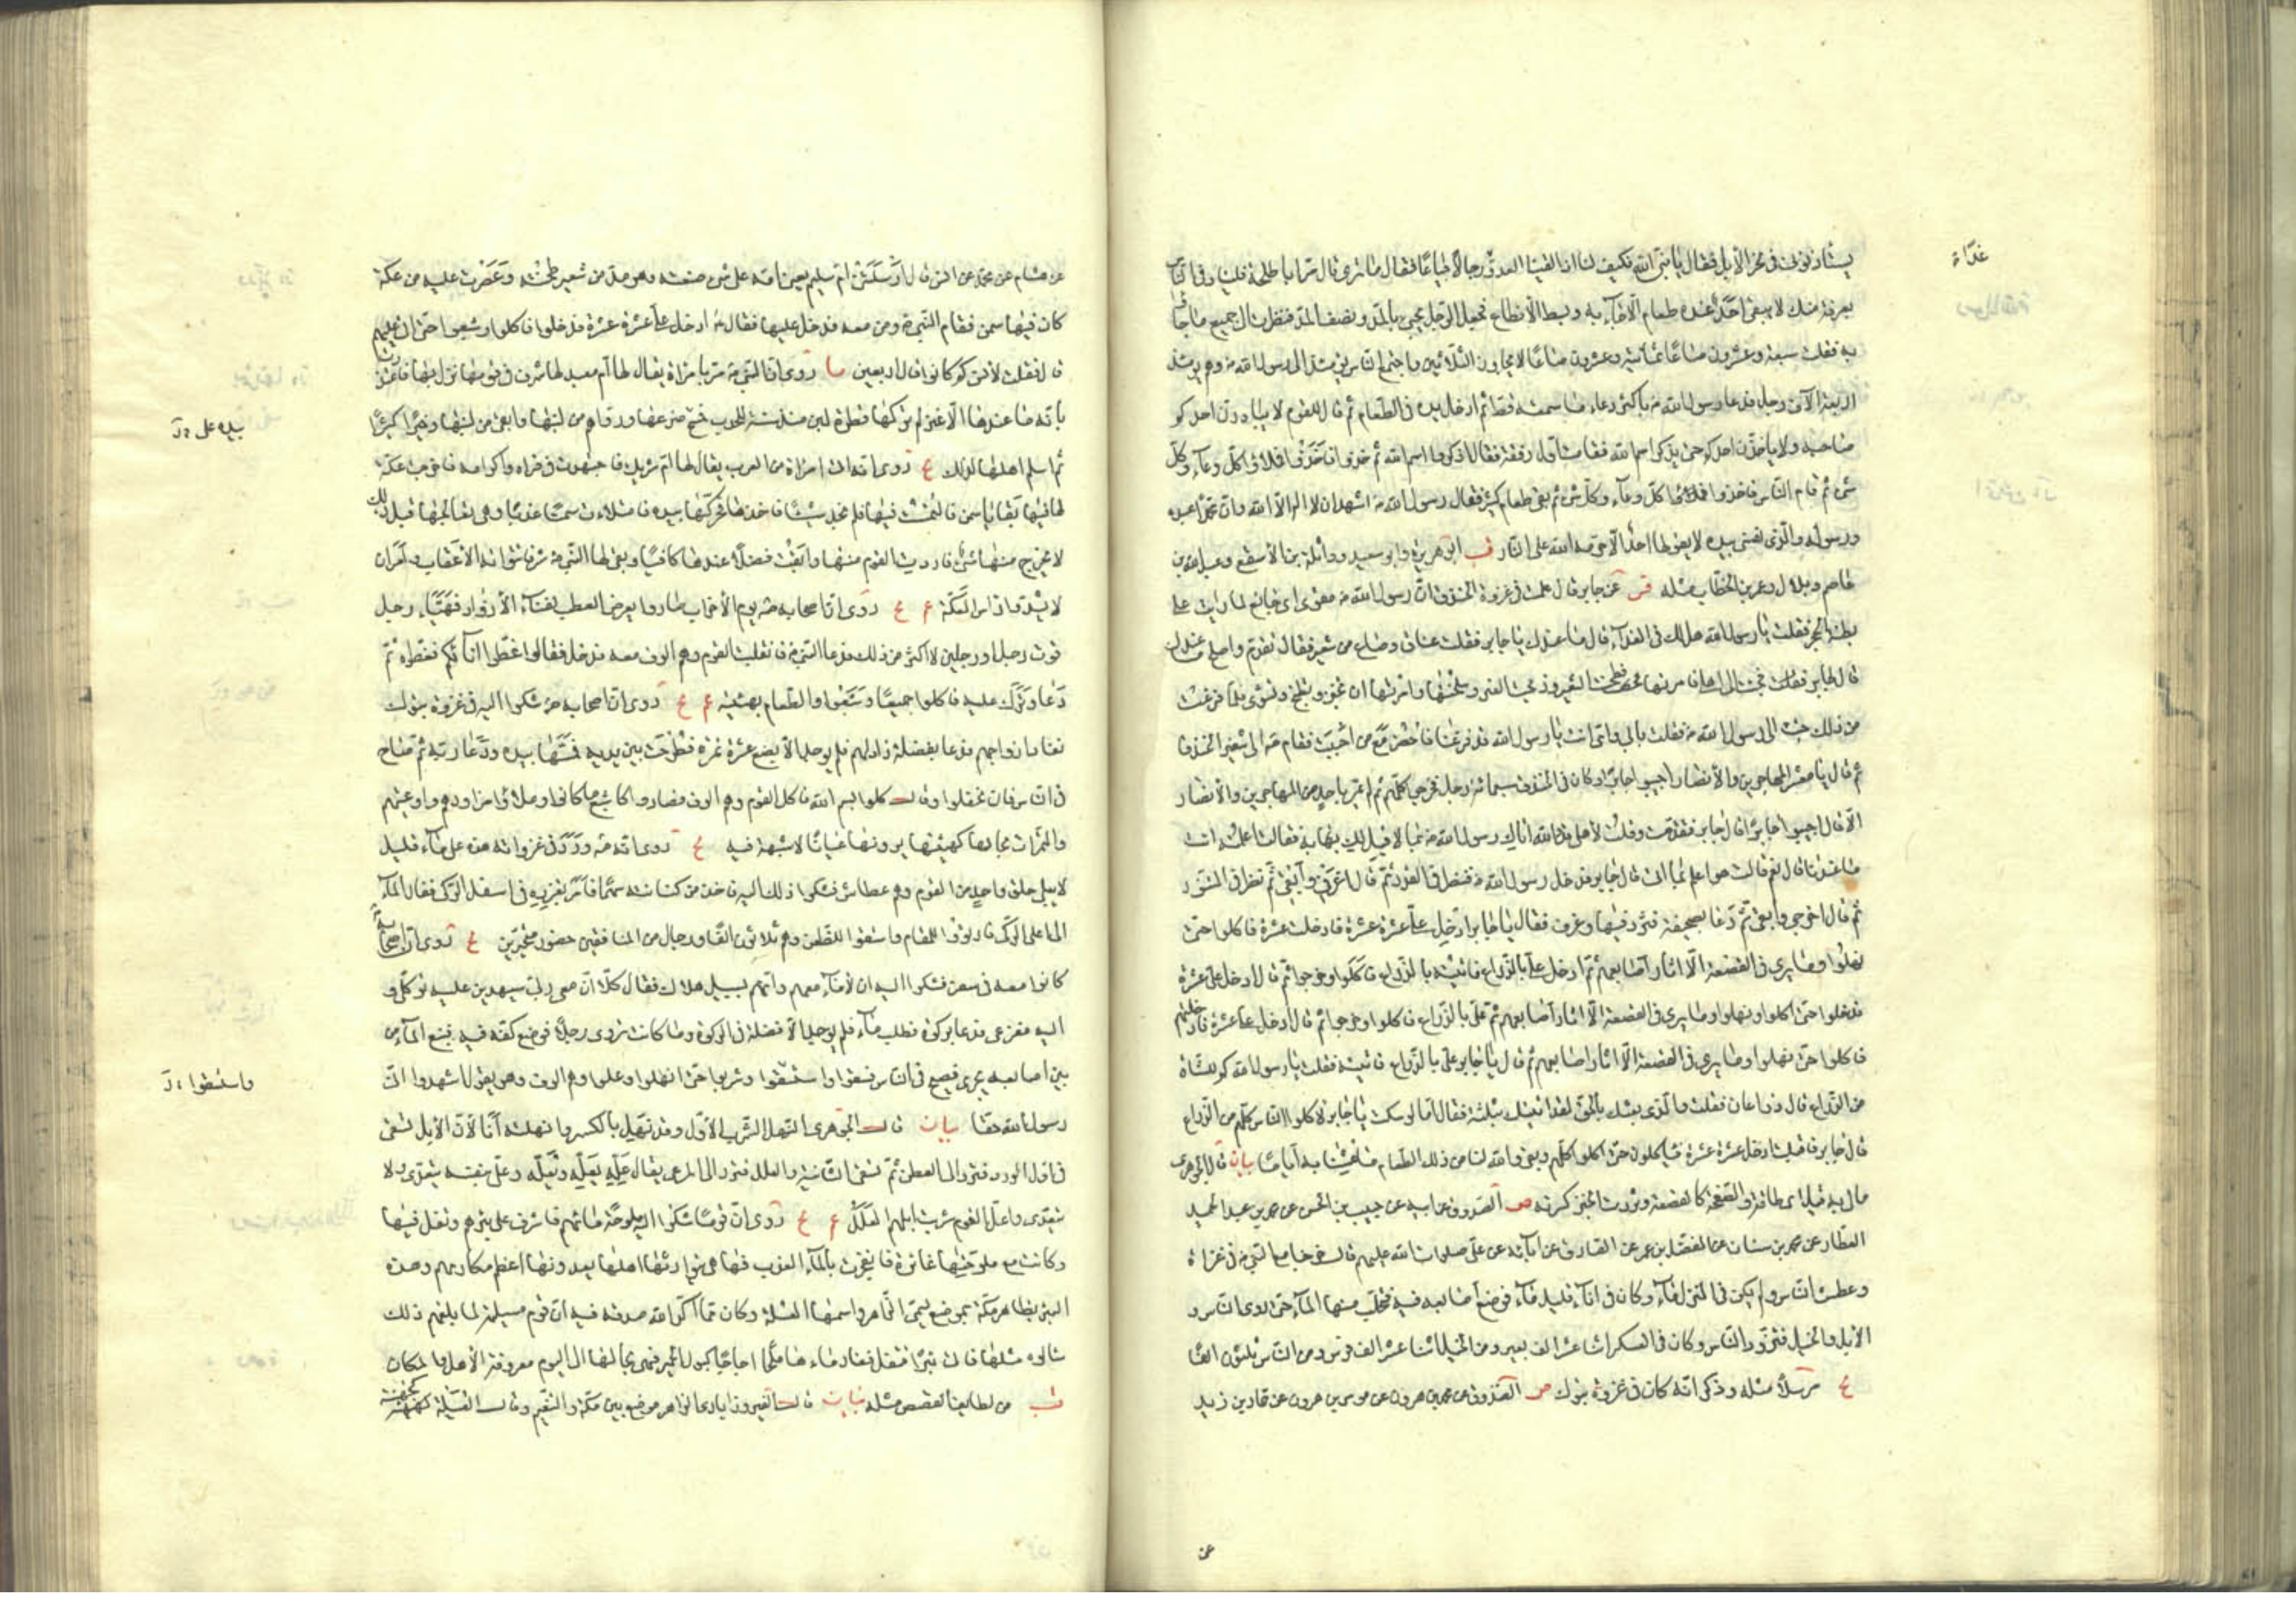 يستأذنونه في نحر الإبل فقال يا نبي الله فكيف لنا إذا لقينا العدو رجالا جياعا فقال ما ترى قال مر أبا طلحة فليناد في الناس
غداة
بعزمة منك لا يبقى أحد عنده طعام إلا جاء به وبسط الأنطاع فجعل الرجل يجيء بالمد ونصف المد فنظرت إلى جميع ما جاؤا
به فقلت سبعة وعشرون صاعا ثمانية وعشرون صاعا لا يجاوز الثلاثين واجتمع الناس يومئذ إلى رسول الله ص وهم يومئذ
أربعة آلاف رجل فدعا رسول الله ص بأكثر دعاء ما سمعته قط ثم أدخل يده في الطعام ثم قال للقوم لا يبادرن أحدكم
صاحبه ولا يأخذن أحدكم حتى يذكر اسم الله فقامت أول رفقة فقال اذكروا اسم الله ثم خذوا فأخذوا فملأوا كل وعاء وكل
شيء ثم قام الناس فأخذوا فملأوا كل وعاء وكل شيء ثم بقي طعام كثير فقال رسول الله ص أشهد أن لا إله إلا الله وأن محمدا عبده
ورسوله والذي نفسي بيده لا يقولها أحد إلا حرمه الله على النار قب أبو هريرة وأبو سعيد وواثلة بن الأسقع وعبد الله بن
عاصم وبلال وعمر بن الخطاب مثله قب عن جابر قال علمت في غزوة الخندق أن رسول الله ص مقوي أي جائع لما رأيت على
بطنه الحجر فقلت يا رسول الله هل لك في الغداء قال ما عندك يا جابر فقلت عناق وصاع من شعير فقال تقدم وأصلح ما عندك
قال جابر فجئت إلى أهلي فأمرتها فطحنت الشعير وذبحت العنز وسلختها وأمرتها أن تخبز وتطبخ وتشوي فلما فرغت
من ذلك جئت إلى رسول الله ص فقلت بأبي وأمي أنت يا رسول الله قد فرغنا فاحضر مع من أحببت فقام ص إلى شفير الخندق
ثم قال يا معشر المهاجرين والأنصار أجيبوا جابرا وكان في الخندق سبعمائة رجل فخرجوا كلهم ثم لم يمر بأحد من المهاجرين والأنصار
إلا قال أجيبوا جابرا قال جابر فتقدمت وقلت لأهلي قد والله أتاك رسول الله ص بما لا قبل لك به فقالت أعلمته أنت
ما عندنا قال نعم قالت هو أعلم بما أتى قال جابر فدخل رسول الله ص فنظر في القدر ثم قال اغرفي وأبقي ثم نظر في التنور
ثم قال أخرجي وأبقي ثم دعا بصحيفة فثرد فيها وغرف فقال يا جابر أدخل علي عشرة عشرة فأدخلت عشرة فأكلوا حتى
نهلوا وما يرى في القصعة إلا آثار أصابعهم ثم قال علي بالذراع فأتيته بالذراع فأكلوا وخرجوا ثم قال أدخل علي عشرة
فدخلوا حتى أكلوا ونهلوا وما يرى في القصعة إلا آثار أصابعهم ثم علي بالذراع فأكلوا وخرجوا ثم قال أدخل علي عشرة فأدخلتهم
فأكلوا حتى نهلوا وما يرى في القصعة إلا آثار أصابعهم ثم قال يا جابر علي بالذراع فأتيته فقلت يا رسول الله كم للشاة
من الذراع قال ذراعان فقلت والذي بعثك بالحق لقد أتيتك بثلثة فقال أما لو سكت يا جابر لأكلوا الناس كلهم من الذراع
قال جابر فأقبلت أدخل عشرة عشرة فيأكلون حتى أكلوا كلهم وبقي والله لنا من ذلك الطعام ما عشنا به أياما بيان قال الجوهري
والصحفة كالقصعة وثردت الخبز كسرته ص الصدوق عن أبيه عن حبيب بن الحسن عن محمد بن عبد الحميد
العطار عن محمد بن سنان عن المفضل بن عمر عن الصادق عن آبائه عن علي صلوات الله عليهم قال خرجنا مع النبي ص في غزاة
وعطش الناس ولم يكن في المنزل ماء وكان في إناء قليل ماء فوضع أصابعه فيه فتحلب منها الماء حتى روي الناس و
الإبل والخيل فتزود الناس وكان في العسكر اثنا عشر ألف بعير ومن الخيل اثنا عشر ألف فرس ومن الناس ثلثون ألفا
يج مرسلا مثله وذكر أنه كان في غزوة تبوك ص الصدوق عن محمد بن هرون عن موسى بن هرون عن حماد بن زيد
عن
عن هشام عن محمد عن أنس قال أرسلتني أم سليم يعني أمه على شيء صنعته وهو مد من شعير طحنته وعصرت عليه من عكة
كان فيها سمن فقام النبي ص ومن معه فدخل عليها فقال ص أدخل علي عشرة عشرة فدخلوا فأكلوا وشبعوا حتى أتى عليهم
قال فقلت لأنس كم كانوا قال أربعين روي أن النبي ص مر بامرأة يقال لها أم معبد لها شرف في قومها نزل بها
بأنه ما عندها إلا عنز لم تر لها قطرة لبن منذ سنة للجدب فمسح ضرعها ورواهم من لبنها وأبقى من لبنها وخيرا كثيرا
بيده على
ثم أسلم أهلها لذلك يج روي أنه أتى امرأة من العرب يقال لها أم شريك فاجتهدت في قراه وإكرامه فأخرجت عكة
لها فيها بقايا سمن فالتمست فيها فلم تجد شيئا فأخذها فحركها بيده فامتلأت سمنا عذبا وهي تعالجها قبل ذلك
لا يخرج منها شيء فأروت القوم منها وأبقت فضلا عندها كافيا وبقي لها النبي ص شرفا يتوارثه الأعقاب وأمر أن
لا يشد رأس العكة يج روي أن أصحابه ص يوم الأحزاب صاروا بمعرض العطب لفناء الأزواد فهيأ رجل
قوت رجل أو رجلين لا أكثر من ذلك ودعا النبي ص فانقلب القوم وهم ألوف معه فدخل فقال غطوا إناءكم فغطوه ثم
دعا وبرك عليه فأكلوا جميعا وشبعوا والطعام بهيئته يج روي أن أصحابه ص شكوا إليه في غزوة تبوك
نفاد أزوادهم فدعا بفضلة زاد لهم فلم يوجد إلا بضع عشرة تمرة فطرحت بين يديه فمسها بيده ودعا ربه ثم صاح
في الناس فانحفلوا وقال كلوا بسم الله فأكل القوم وهم ألوف فصاروا كأشبع ما كانوا وملأوا مزاودهم وأوعيتهم
والتمرات بحالها كهيئتها يرونها عيانا لا شبهة فيه يج روي أنه ص ورد في غزواته هذه على ماء قليل
لا يبل حلق واحد من القوم وهم عطاش فشكوا ذلك إليه فأخذ من كنانته سهما فأمر بغرزه في أسفل الركي ففار الماء
إلى أعلى الركي فارتووا للمقام واستقوا للظعن وهم ثلاثون ألفا ورجال من المنافقين حضور متحيرين يج روي أن أصحابه
كانوا معه في سفر فشكوا إليه أن لا ماء معهم وأنهم بسبيل هلاك فقال كلا إن معي ربي سيهدين عليه توكلي و
إليه مفزعي فدعا بركوة فطلب ماء فلم يوجد إلا فضلة في الركوة وما كانت تروي رجلا فوضع كفه فيه فنبع الماء من
بين أصابعه يجري فصيح في الناس فسقوا واستسقوا وشربوا حتى نهلوا وعلوا وهم ألوف وهو يقول اشهدوا أني
واستقوا
رسول الله حقا بيان قال الجوهري النهل الشرب الأول وقد نهل بالكسر وأنهلته أنا لأن الإبل تسقى
في أول الورد فترد إلى العطن ثم تسقى الثانية وهي العلل فترد إلى المرعى يقال عله يعله ويعله وعل بنفسه يتعدى ولا
يتعدى وأعل القوم شربت إبلهم العلل يج روي أن قوما شكوا إليه ملوحة مائهم فأشرف على بئرهم وتفل فيها
وكانت مع ملوحتها غائرة فانفجرت بالماء العذب فها هي يتوارثها أهلها يعدونها أعظم مكارمهم وهذه
البئر بظاهر مكة بموضع يسمى الزاهر واسمها العسيلة وكان مما أكد الله صدقه فيه أن قوم مسيلمة لما بلغهم ذلك
سألوه مثلها فأتى بئرا فتفل فيها فعاد ماءها ملحا أجاجا كبول الحمير فهي بحالها إلى اليوم معروفة الأهل والمكان
قب من لطائف القصص مثله بيان قال الفيروزآبادي الزاهر موضع بين مكة والتنعيم وقال العسيلة كجهينة